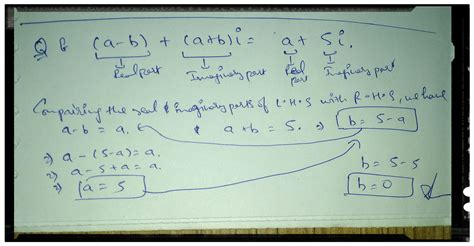 Q 6 (a-b) + (a+b)i = a + 5i.
Real part Imaginary part Real part Imaginary part
Comparing the real & imaginary parts of L.H.S with R.H.S, we have
a-b = a. & a+b = 5. ⇒ b = 5-a
⇒ a-(5-a) = a.
⇒ a-5+a = a.
⇒ a = 5
b = 5-5
b = 0